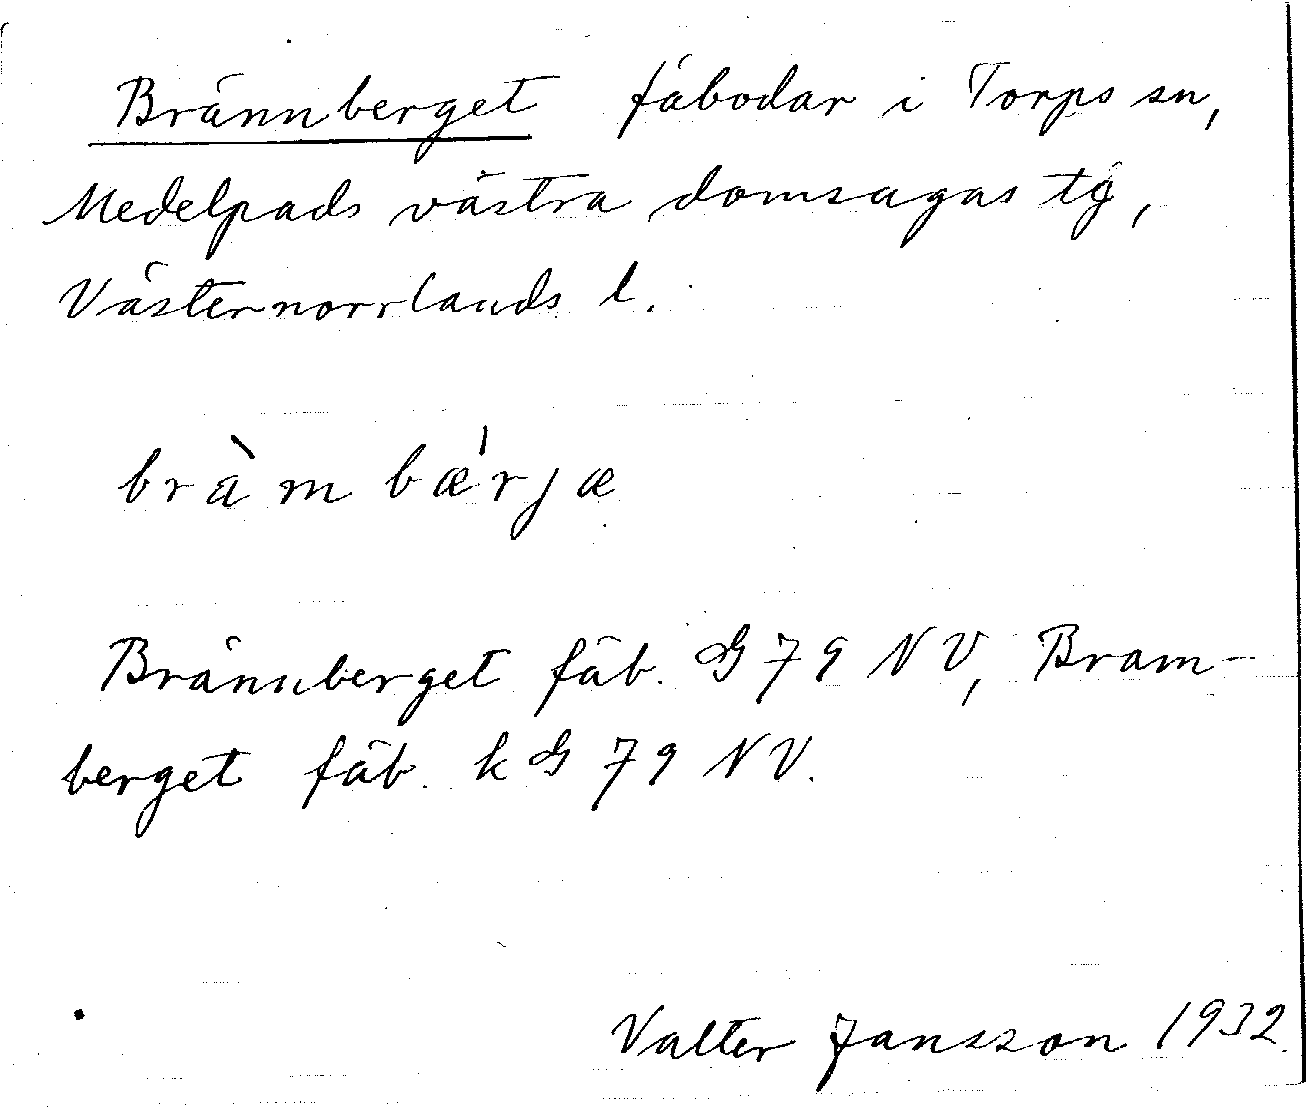 Brännberget fäbodar i Torps sn,
Medelpads västra domsagas tg,
Västernorrlands l.
bràm bǽrjæ
Brännberget fäb. G 79 NV, Bram-
berget fäb. k G 79 NV.
Valter Jansson 1932.